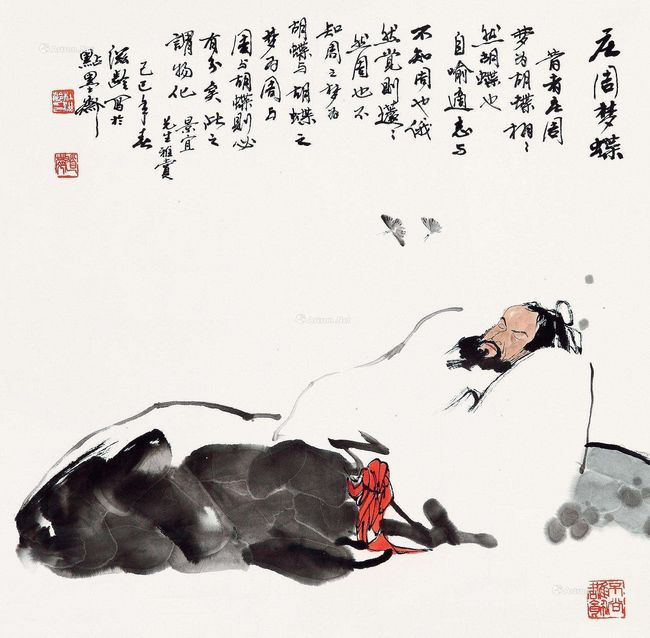 庄周梦蝶
昔者庄周
梦为胡蝶栩〻
然胡蝶也
自喻适志与
不知周也俄
然觉则蘧〻
然周也不
知周之梦为
胡蝶与胡蝶之
梦为周与
周与胡蝶则必
有分矣此之
谓物化 景宜
先生雅赏
己巳年春
滋龄写于
点墨斋